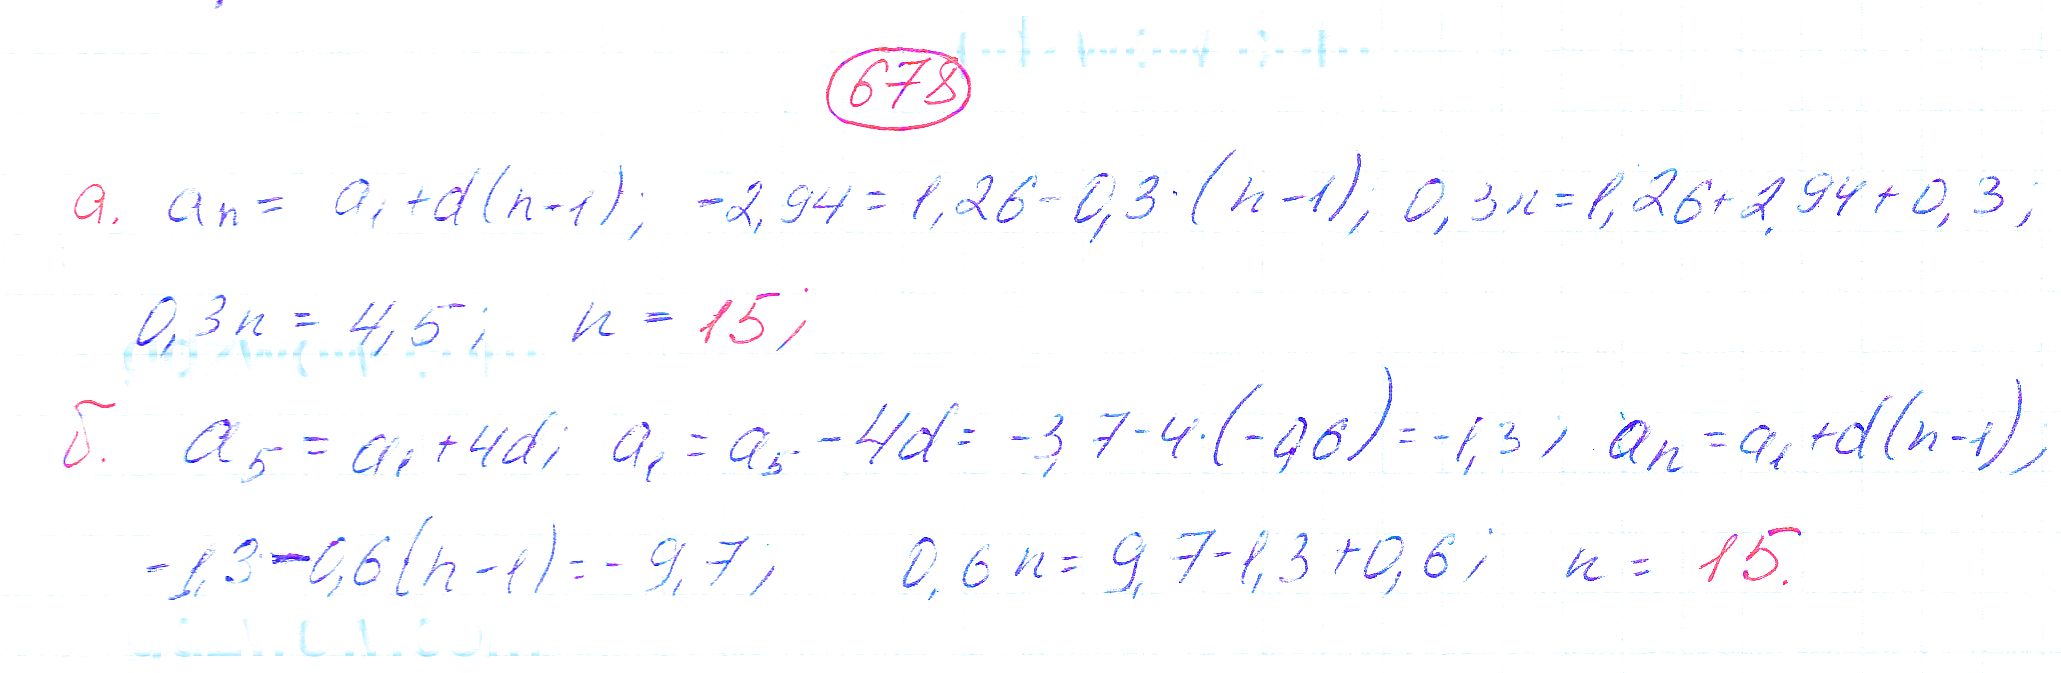 678
а. aₙ = a₁+d(n-1); -2,94=1,26-0,3·(n-1); 0,3n=1,26+2,94+0,3;
0,3n = 4,5; n = 15;
б. a₅ = a₁+4d; a₁=a₅-4d=-3,7-4·(-0,6)=-1,3; aₙ=a₁+d(n-1);
-1,3-0,6(n-1)=-9,7; 0,6n=9,7-1,3+0,6; n = 15.